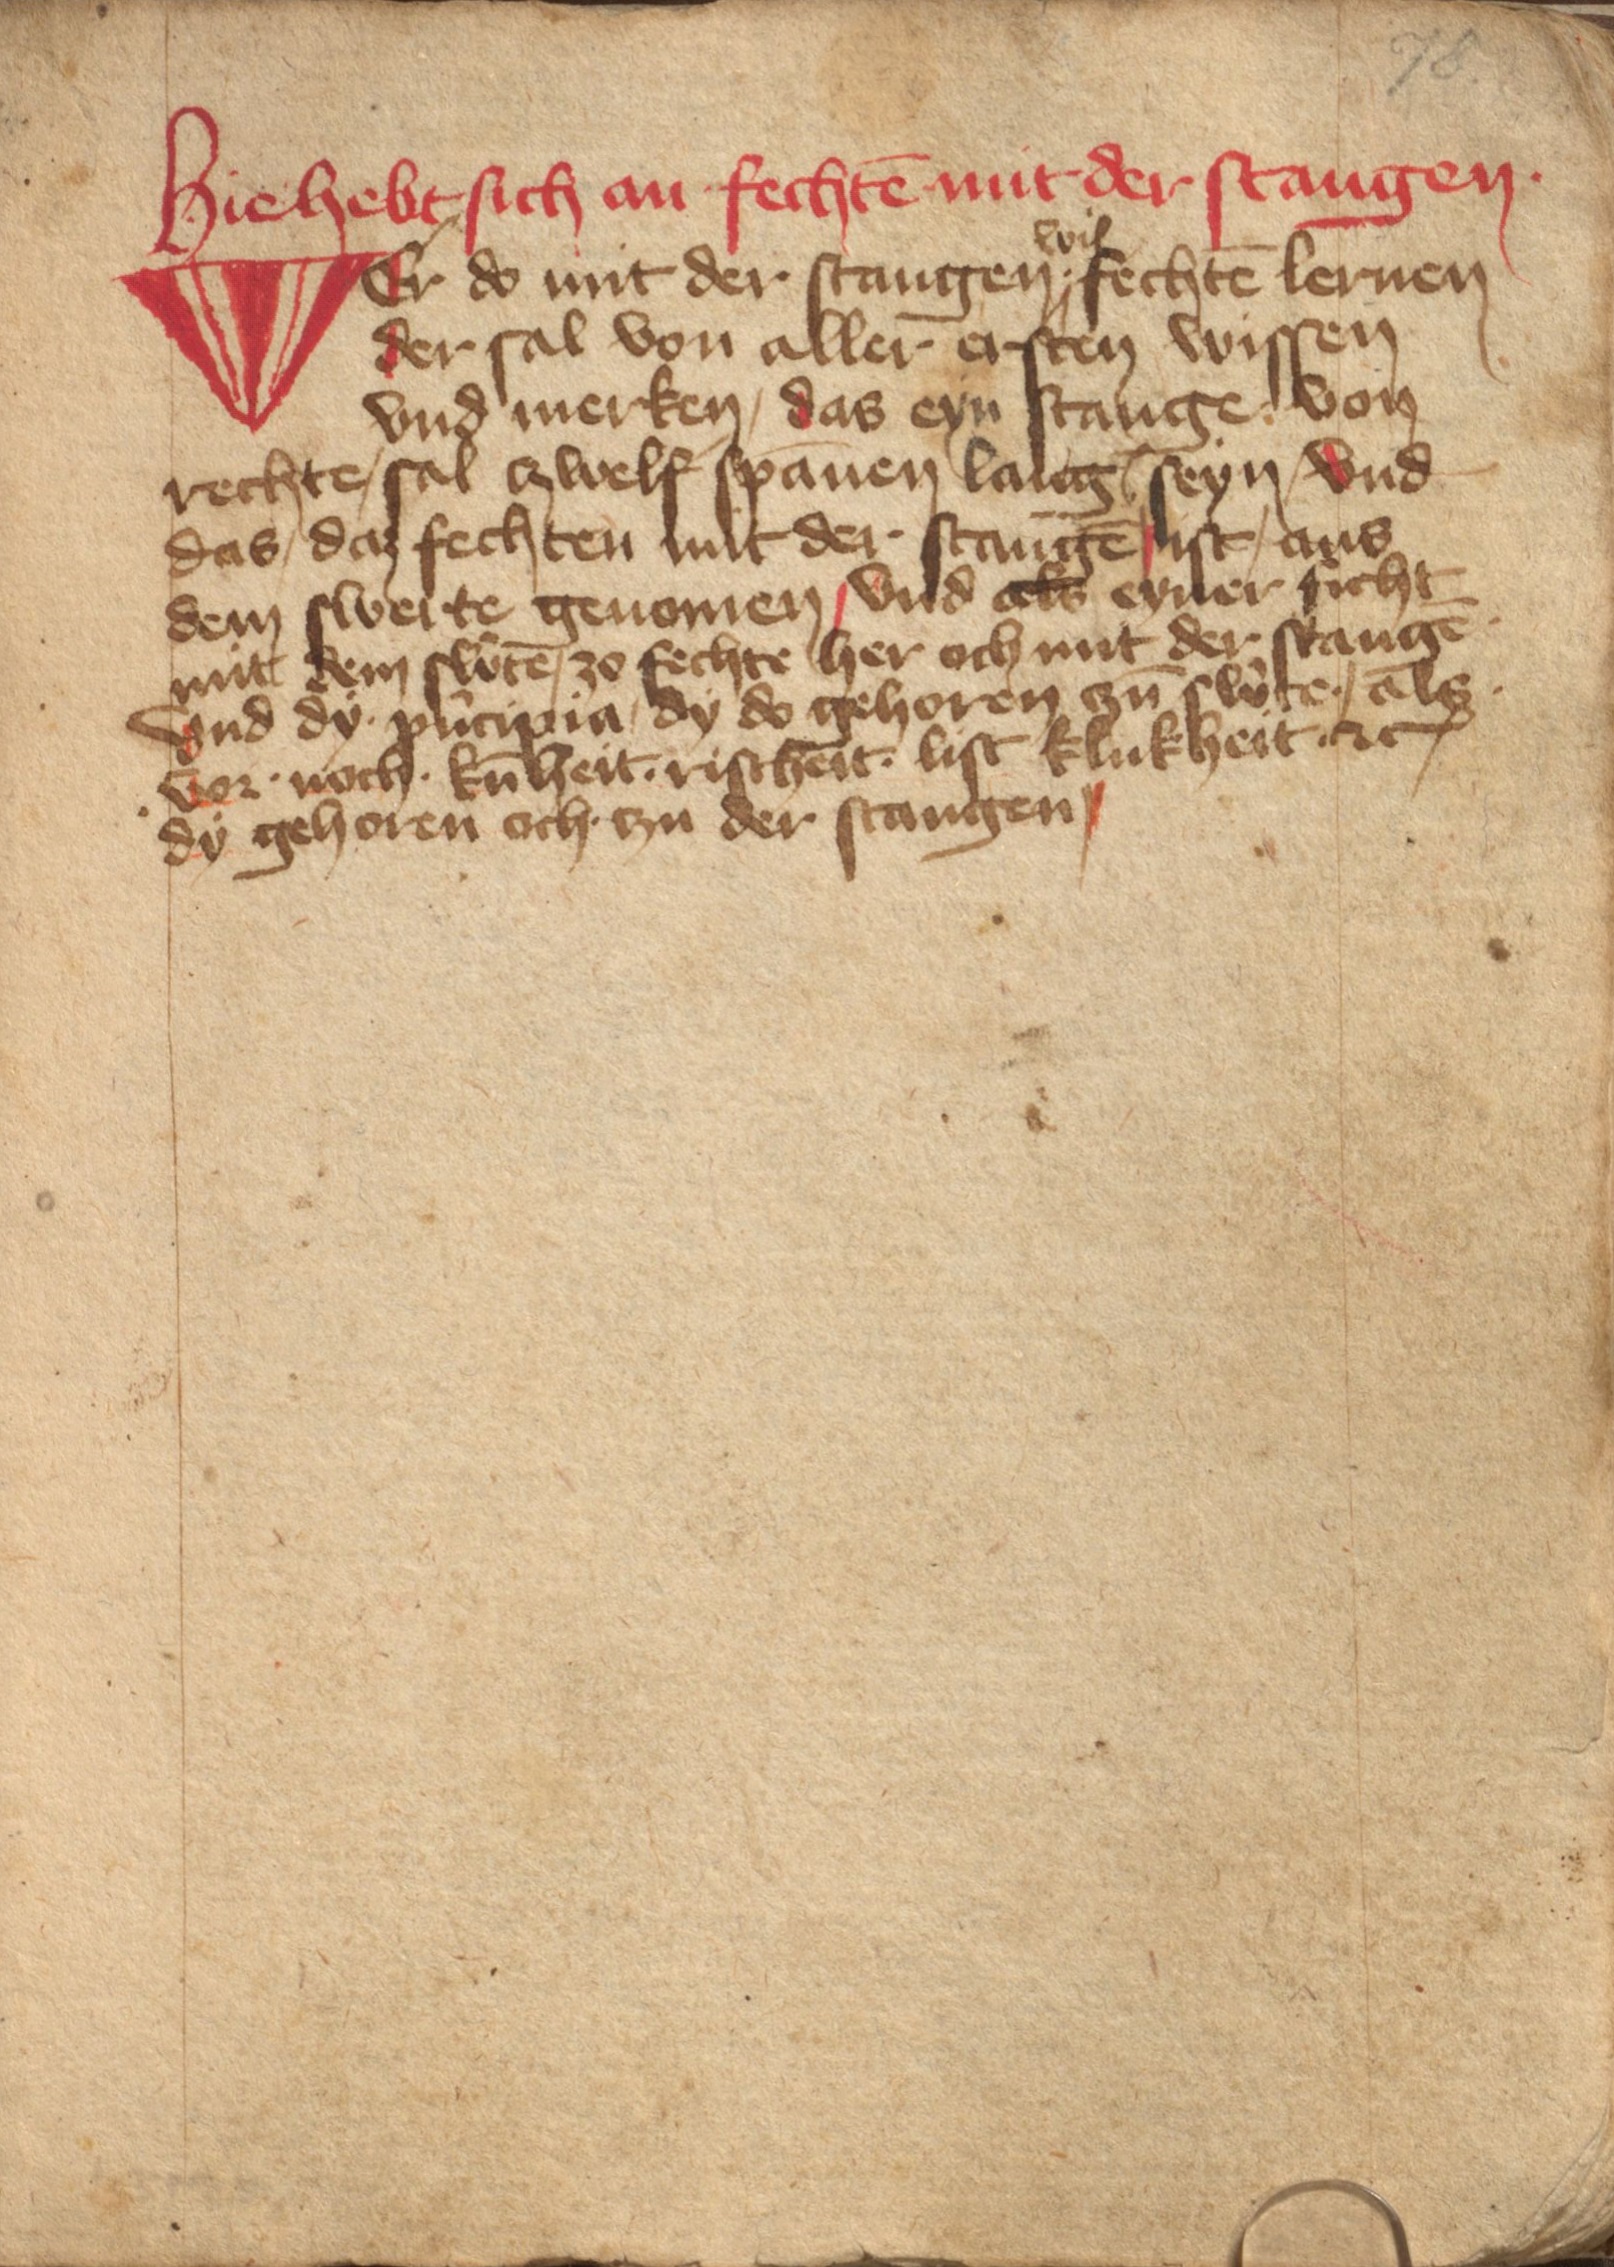 78.
Hie hebt sich an fechtē mit der stangen ·
WEr do mit der stangen wil fechtē lernen
der sal von aller ersten wissen
vnd merken / das eyn stange · von
rechte / sal czwelf spānen lang seyn / vnd
das / daz fechten mit der stangē / ist / aus
dem swerte genomen / vnd als eyner ficht
mit dem sw̓tē / zo fechte her och mit der stangē ·
vnd dy · pn̓cipia / dy do gehoren czū sw̓te / als ·
· vor · noch · kūheit · rischeit · list klukheit · ꝛc
dy gehoren och · czu der stangen /